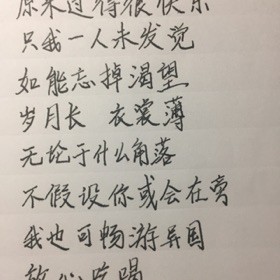 原来过得很快乐
只我一人未发觉
如能忘掉渴望
岁月长 衣裳薄
无论于什么角落
不假设你或会在旁
我也可畅游异国
放心吃喝